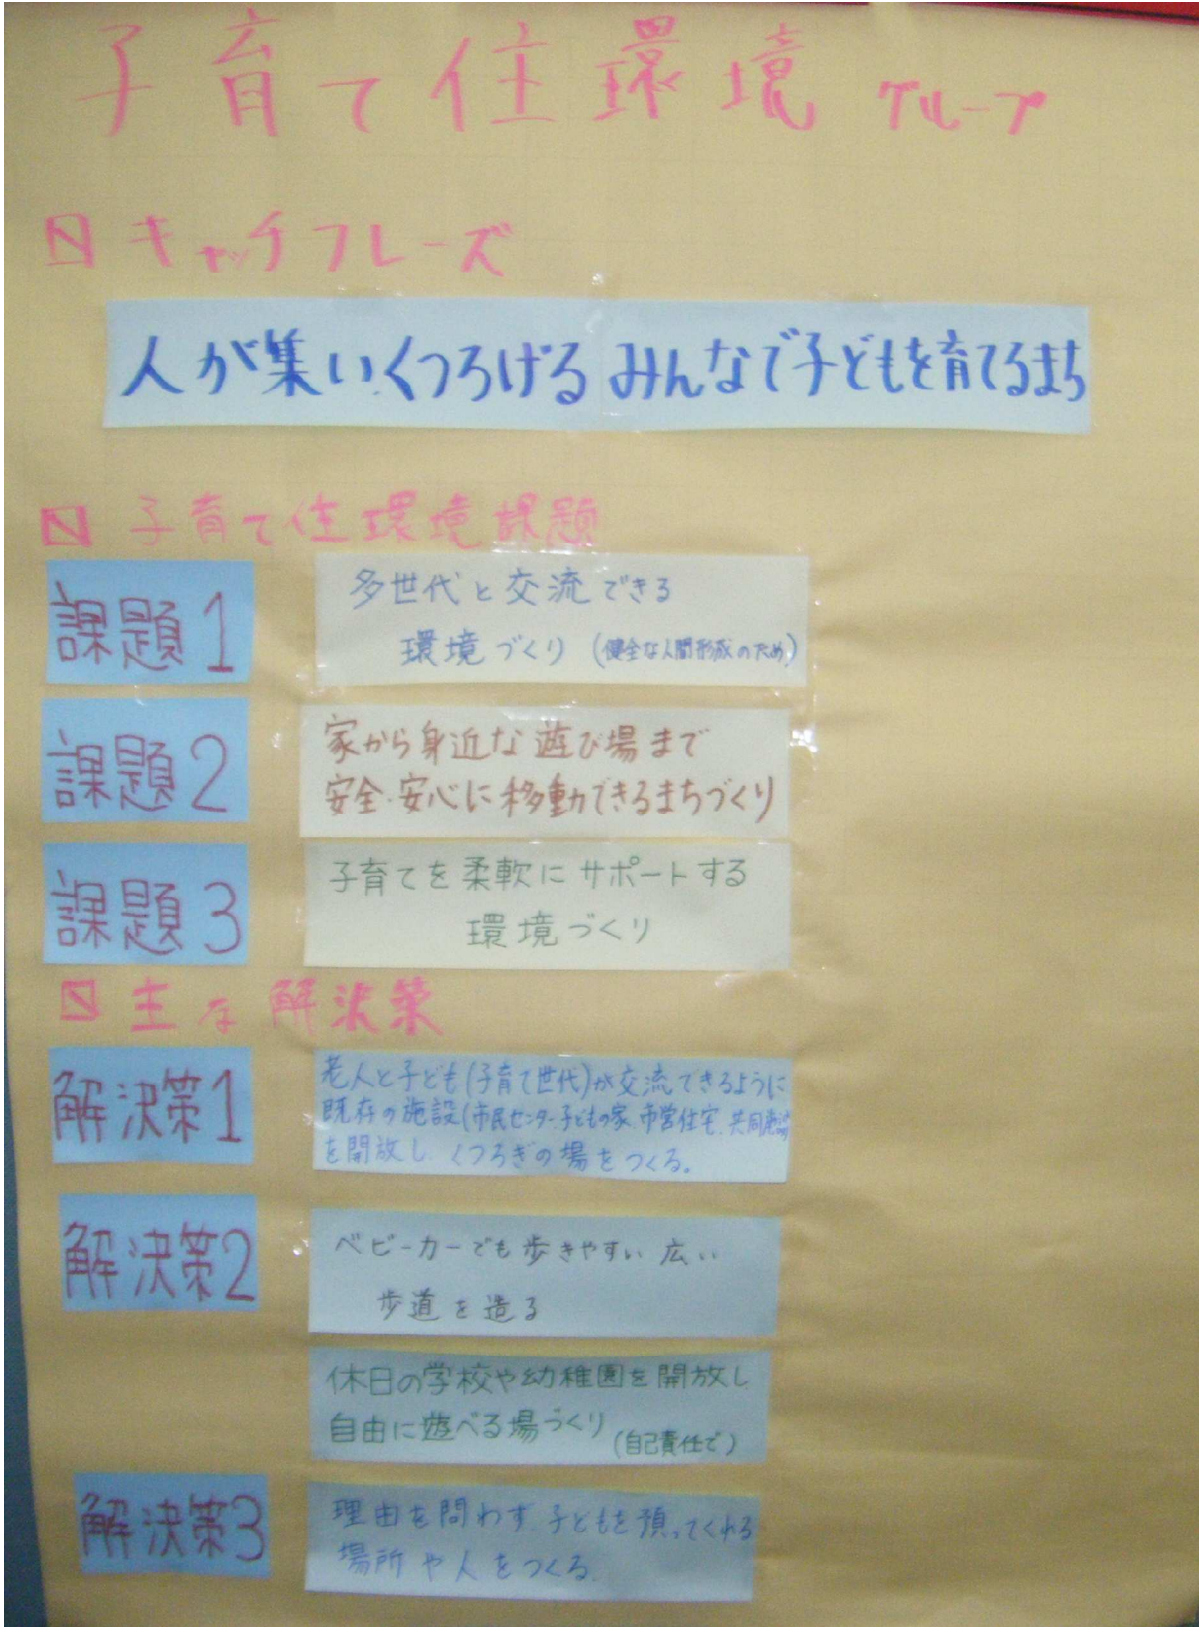 子育て住環境 グループ
キャッチフレーズ
人が集いくつろげる みんなで子どもを育てるまち
子育て住環境課題
課題1
多世代と交流できる
環境づくり (健全な人間形成のため)
課題2
家から身近な遊び場まで
安全・安心に移動できるまちづくり
課題3
子育てを柔軟にサポートする
環境づくり
主な解決策
解決策1
老人と子ども(子育て世代)が交流できるように
既存の施設(市民センター.子どもの家.市営住宅.共同
を開放し くつろぎの場をつくる。
解決策2
ベビーカーでも歩きやすい 広い
歩道を造る
休日の学校や幼稚園を開放し
自由に遊べる場づくり (自己責任で)
解決策3
理由を問わず 子どもを預ってくれる
場所や人をつくる.